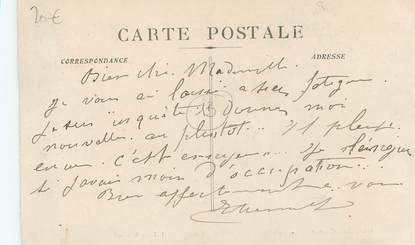 20€
CARTE POSTALE
CORRESPONDANCE
ADRESSE
Bien chi. Mademoiselle
Je vous ai laissé assez fatiguée
Je suis inquiète Donnez moi
nouvelles au plutôt... Il pleut
encore c'est ennuyeux...
si j'avais moins d'occupation..
Bien affectueusement à vous